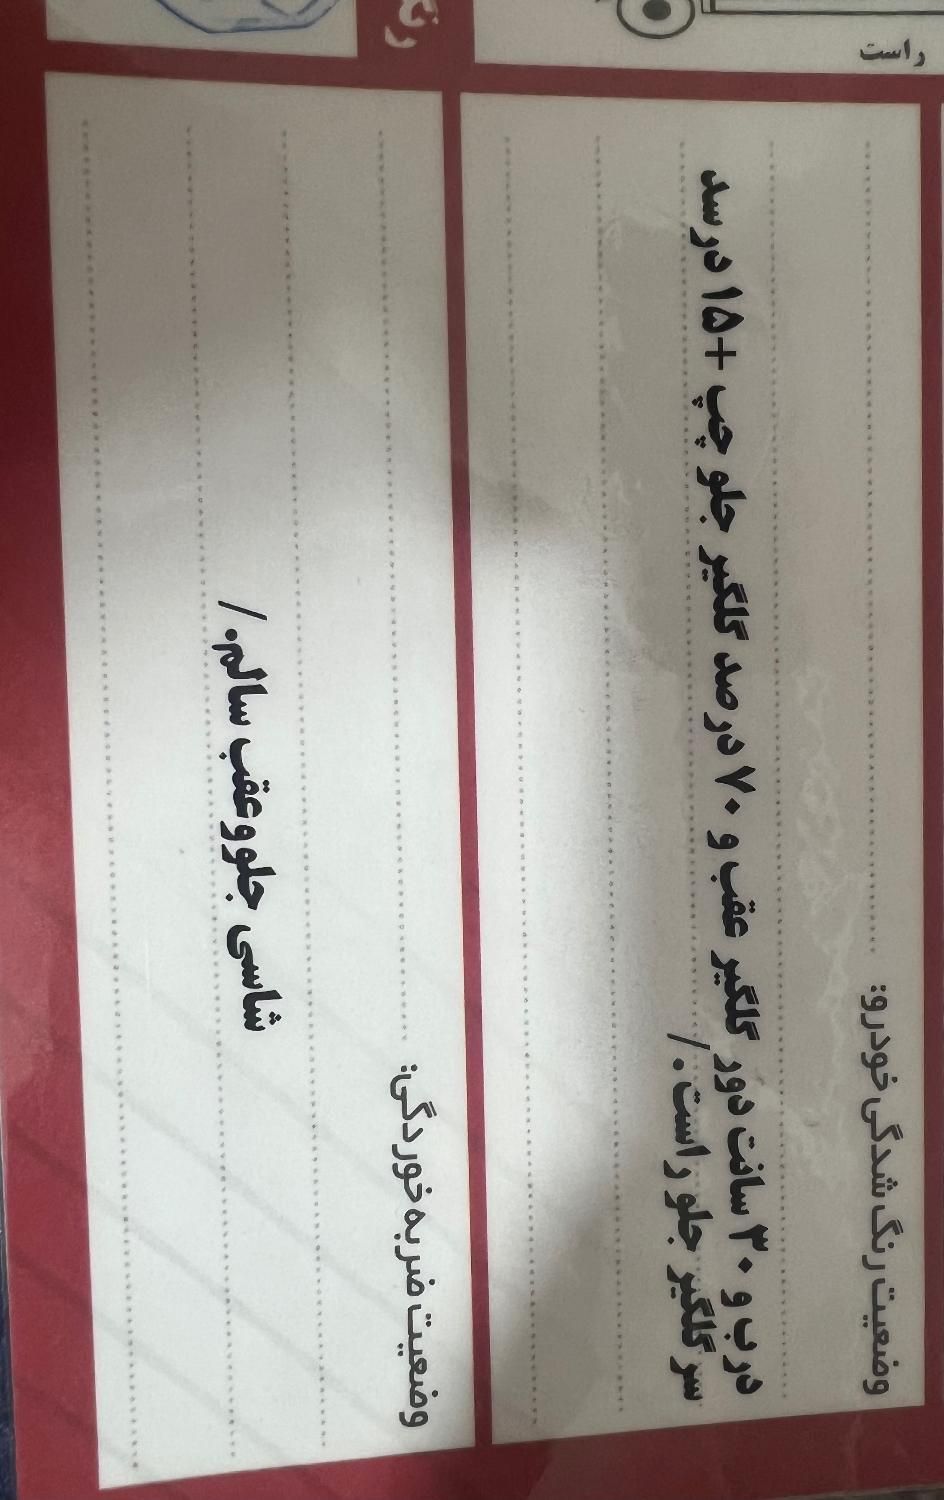 راست
وضعیت رنگ شدگی خودرو:
درب و ۳۰ سانت دور گلگیر عقب و ۷۰ درصد گلگیر جلو چپ +۱۵ درسد
سر گلگیر جلو راست ./
وضعیت ضربه خوردگی:
شاسی جلو وعقب سالم ./